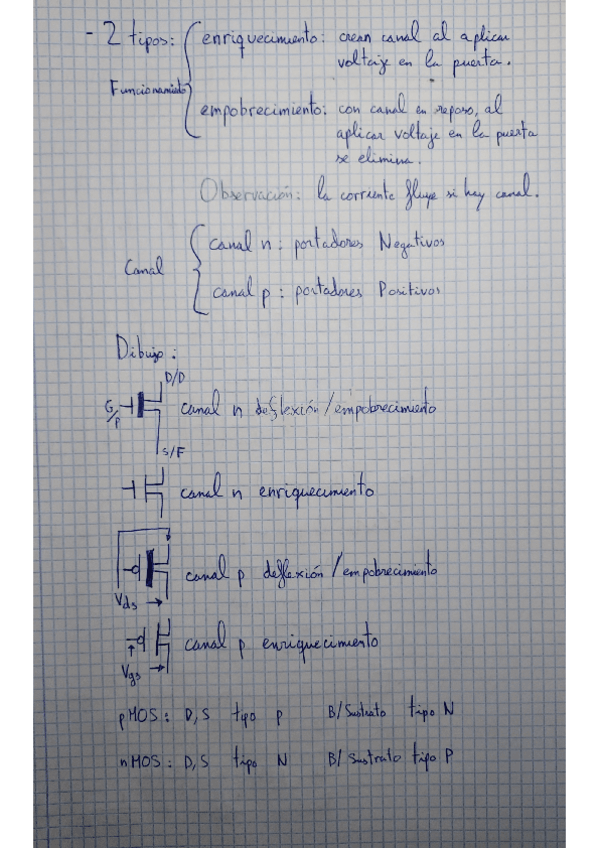 - 2 tipos: enriquecimiento: crean canal al aplicar
voltaje en la puerta.
Funcionamiento
empobrecimiento: con canal en reposo, al
aplicar voltaje en la puerta
se elimina.
Observación: la corriente fluye si hay canal.
Canal
canal n: portadores Negativos
canal p: portadores Positivos
Dibujo:
D/D
G/P
canal n deflexión/empobrecimiento
S/F
canal n enriquecimiento
canal p deflexión/empobrecimiento
Vds
canal p enriquecimiento
Vgs
pMOS: D,S tipo p B/Sustrato tipo N
nMOS: D,S tipo N B/Sustrato tipo P